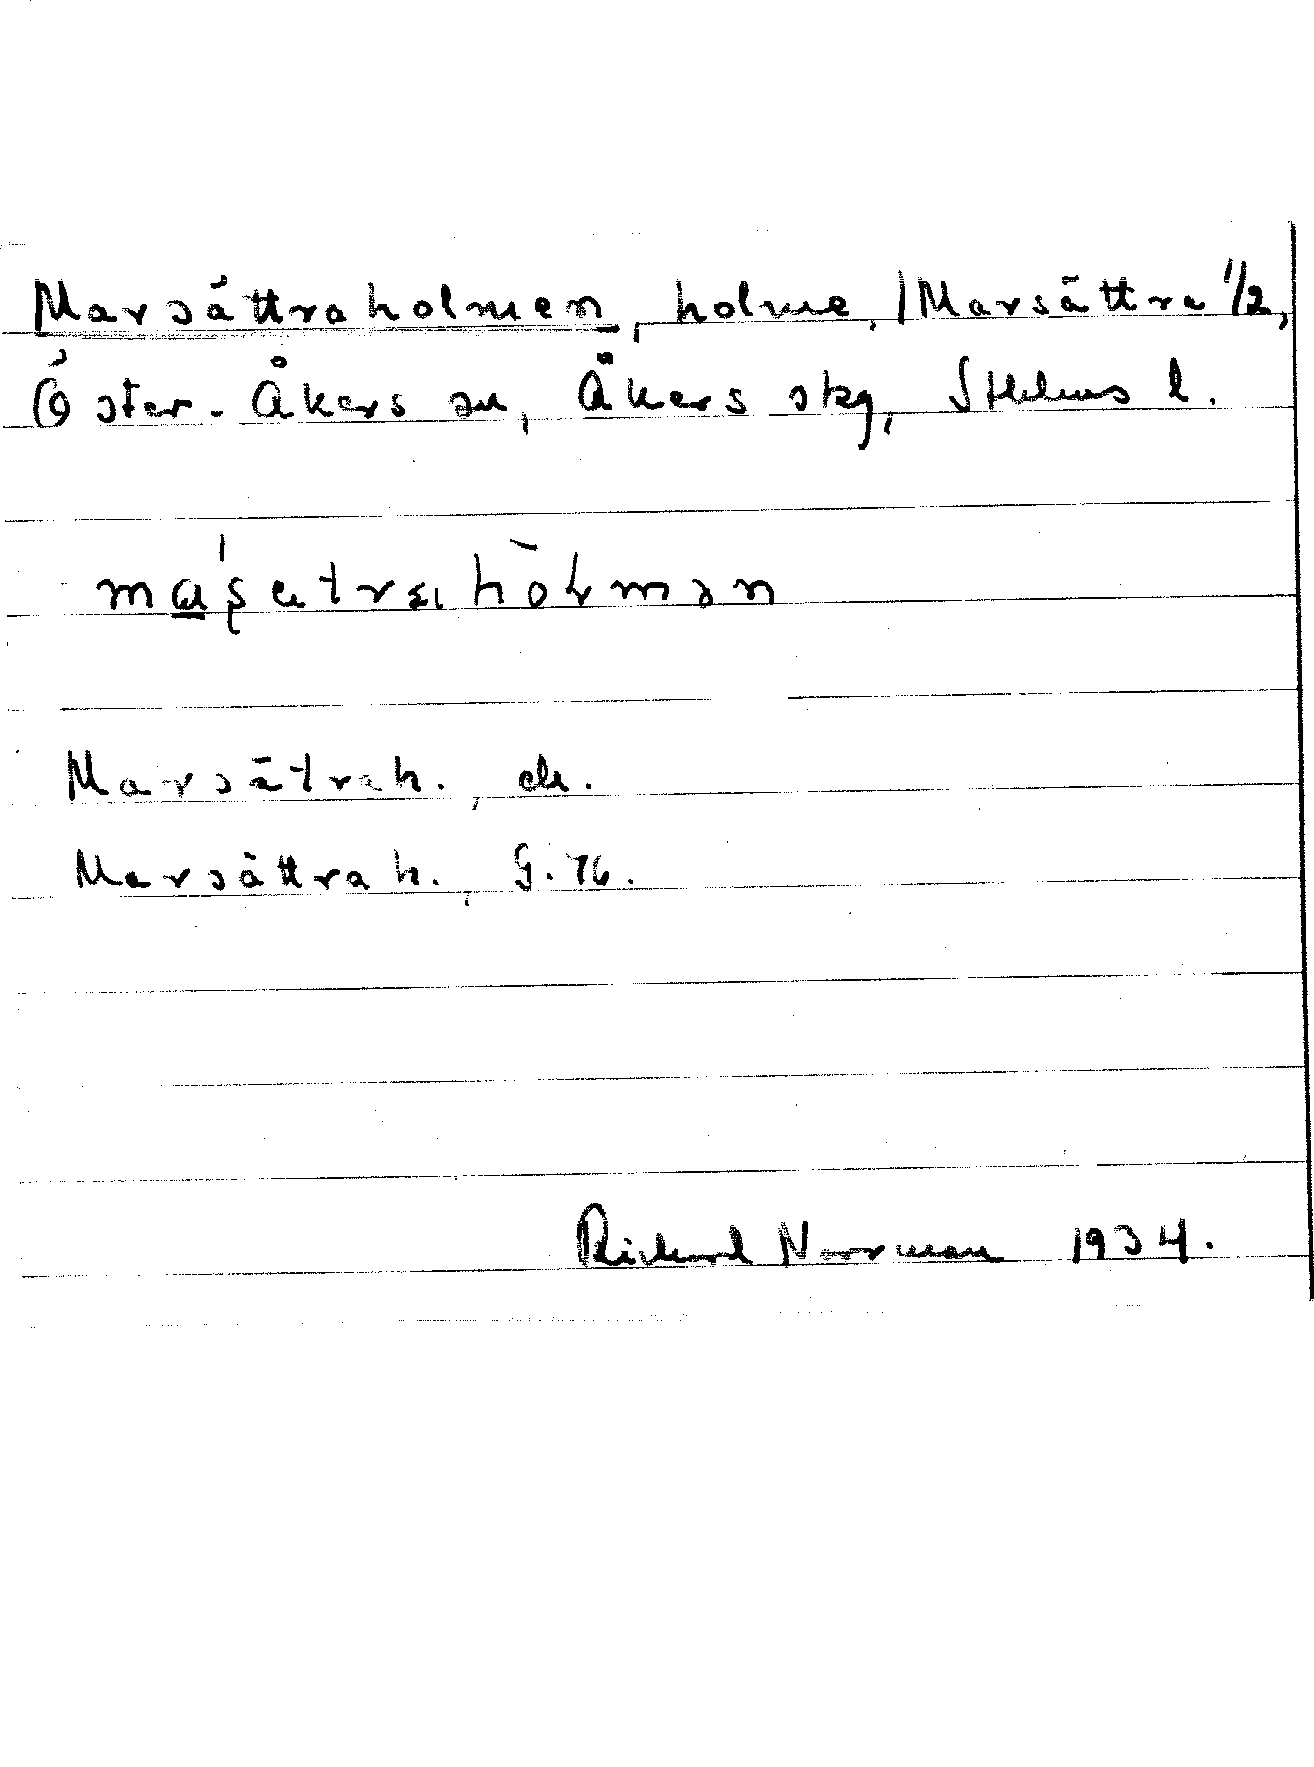 Marsättraholmen, holme, /Marsättra 1/2,
Öster-Åkers sn, Åkers skg, Sthlms l.
Marsätrah., ek.
Marsättrah., G. 76.
Richard Norrman 1934.